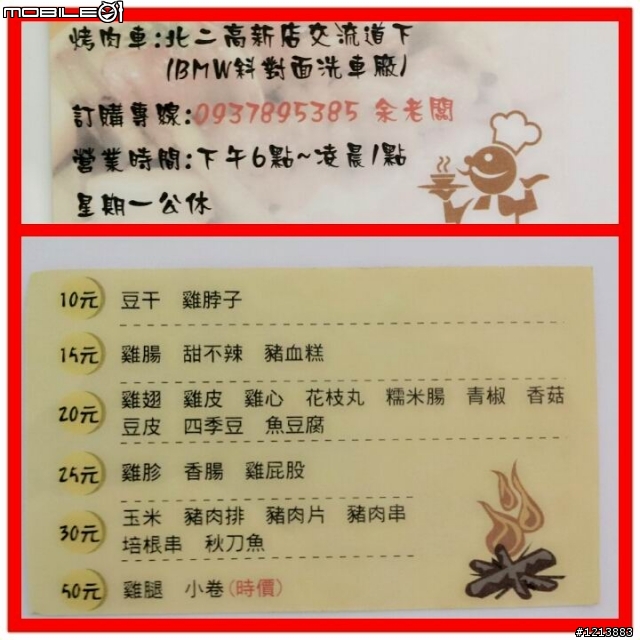 MOBILE01
烤肉車:北二高新店交流道下
(BMW斜對面洗車廠)
訂購專線:0937895385 余老闆
營業時間:下午6點~凌晨1點
星期一公休
10元 豆干 雞脖子
15元 雞腸 甜不辣 豬血糕
20元 雞翅 雞皮 雞心 花枝丸 糯米腸 青椒 香菇
豆皮 四季豆 魚豆腐
25元 雞胗 香腸 雞屁股
30元 玉米 豬肉排 豬肉片 豬肉串
培根串 秋刀魚
50元 雞腿 小卷(時價)
#1213883